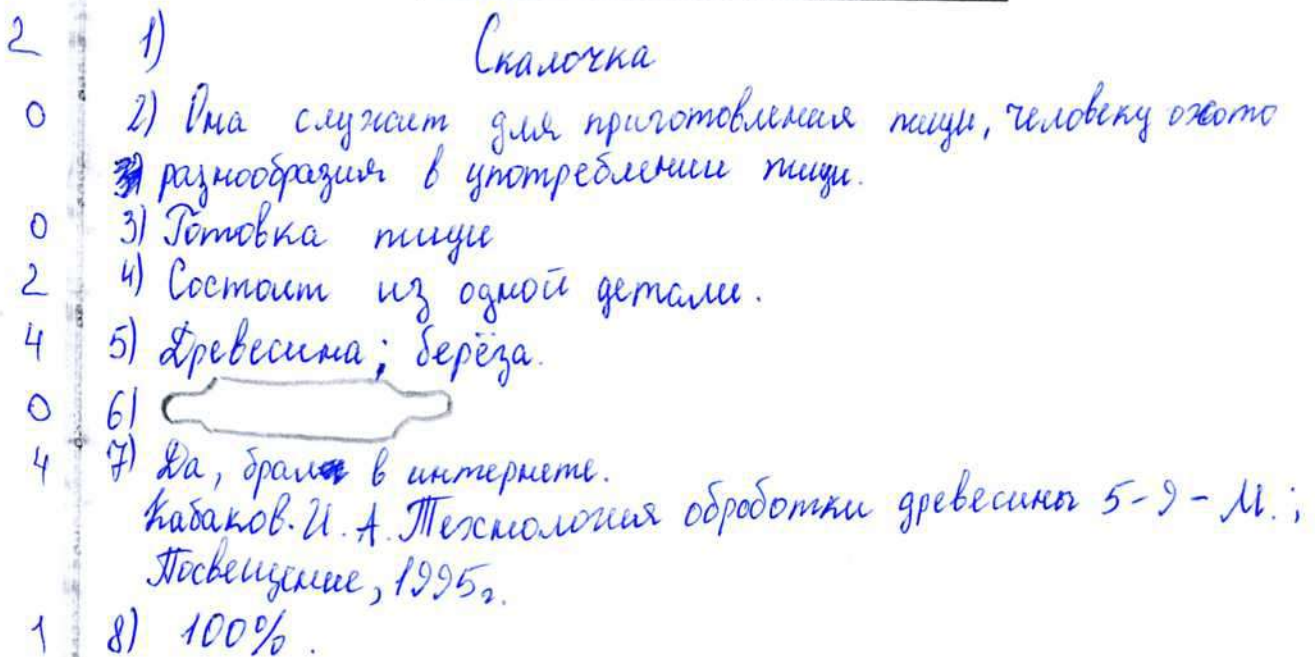 2 1) Скалочка
0 2) Она служит для приготовления пищи, человеку охото
разнообразия в употреблении пищи.
0 3) Готовка пищи
2 4) Состоит из одной детали.
4 5) Древесина; берёза.
0 6)
4 7) Да, брал в интернете.
Кабаков. И. А. Технология обработки древесины 5-9 - М.;
Посвещение, 1995г.
1 8) 100%.